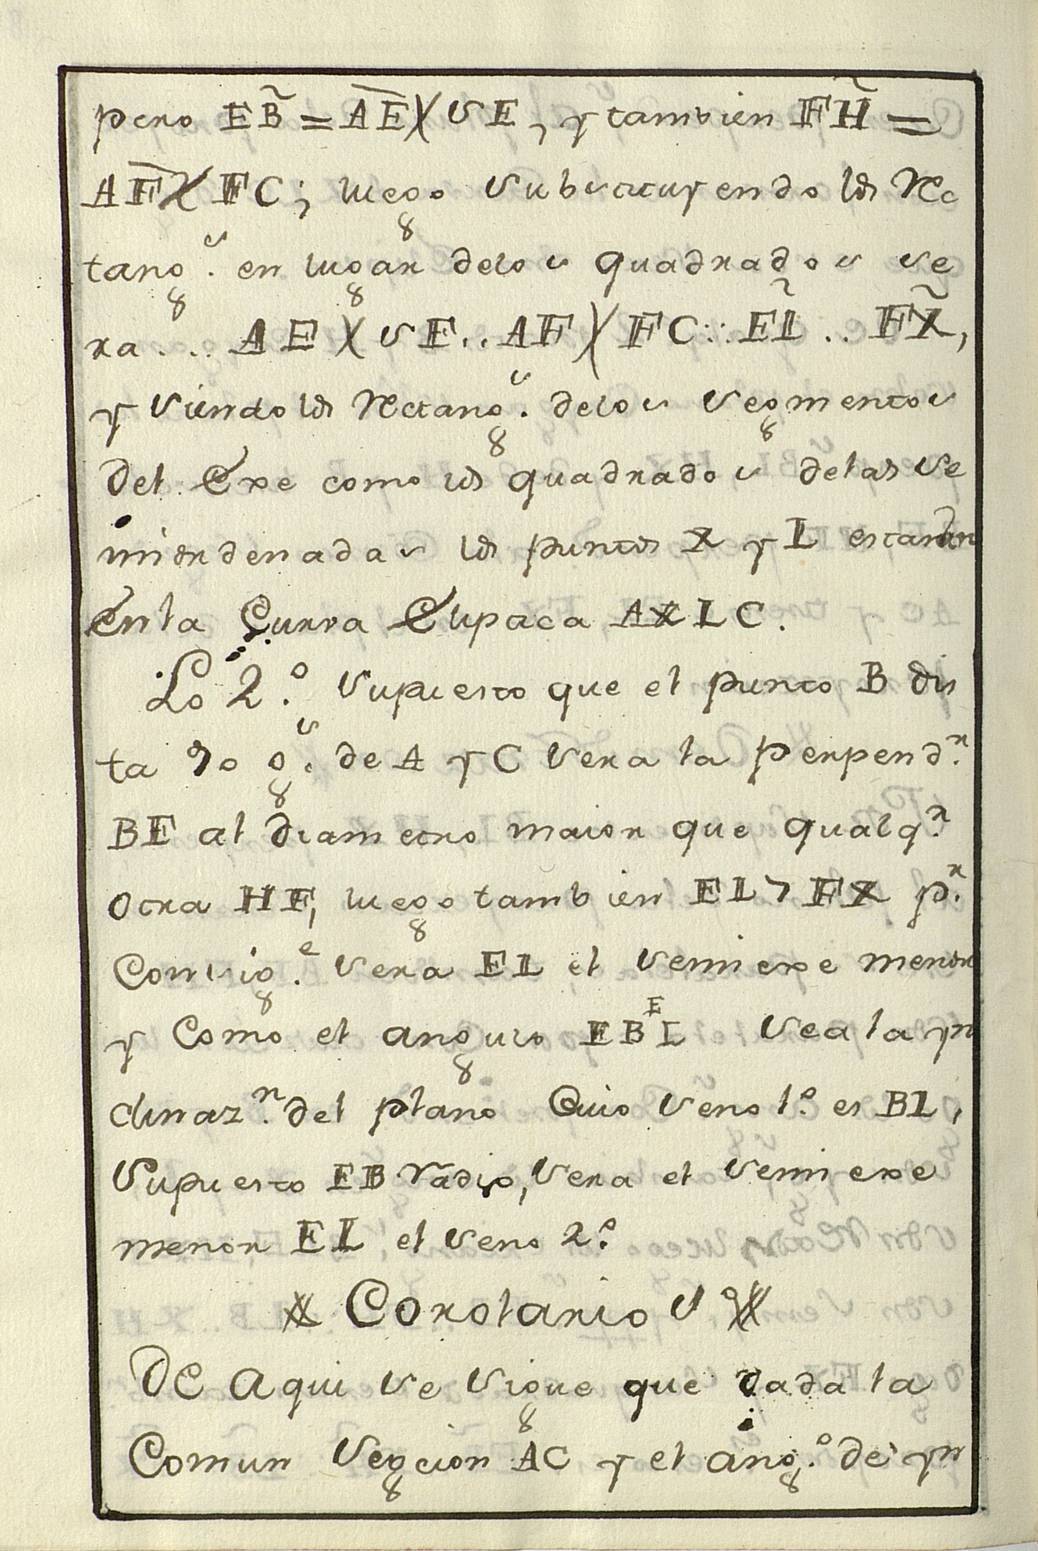 pero EB̃ = A̅E̅)(SE, y tambien FH̃ =
AF)(FC; luego substituyendo los Rec
tang.s en lugar delos quadrados se
ra... AE)(SE..AF)(FC::EL̃..FX̃,
y siendo los Rectang.s delos segmentos
del Exe como los quadrados delas se
miordenadas los puntos X y L estaran
en la Curva Elipaca AXLC.
Lo 2.º supuesto que el punto B dis
ta 90 g.s de A y C sera la Perpend.r
BE al diametro maior que qualq.r
otra HF, luego tambien EL > FX p.r
Consig.e sera EL el semiexe menor
y Como el angulo EBEL sea la yn
clinaz.n del plano Cuio seno 1.º es BL,
supuesto EB radio, sera el semiexe
menor EL el seno 2.º
Corolario s
De Aqui se sigue que dada la
Comun Seccion AC y el ang.º de yn